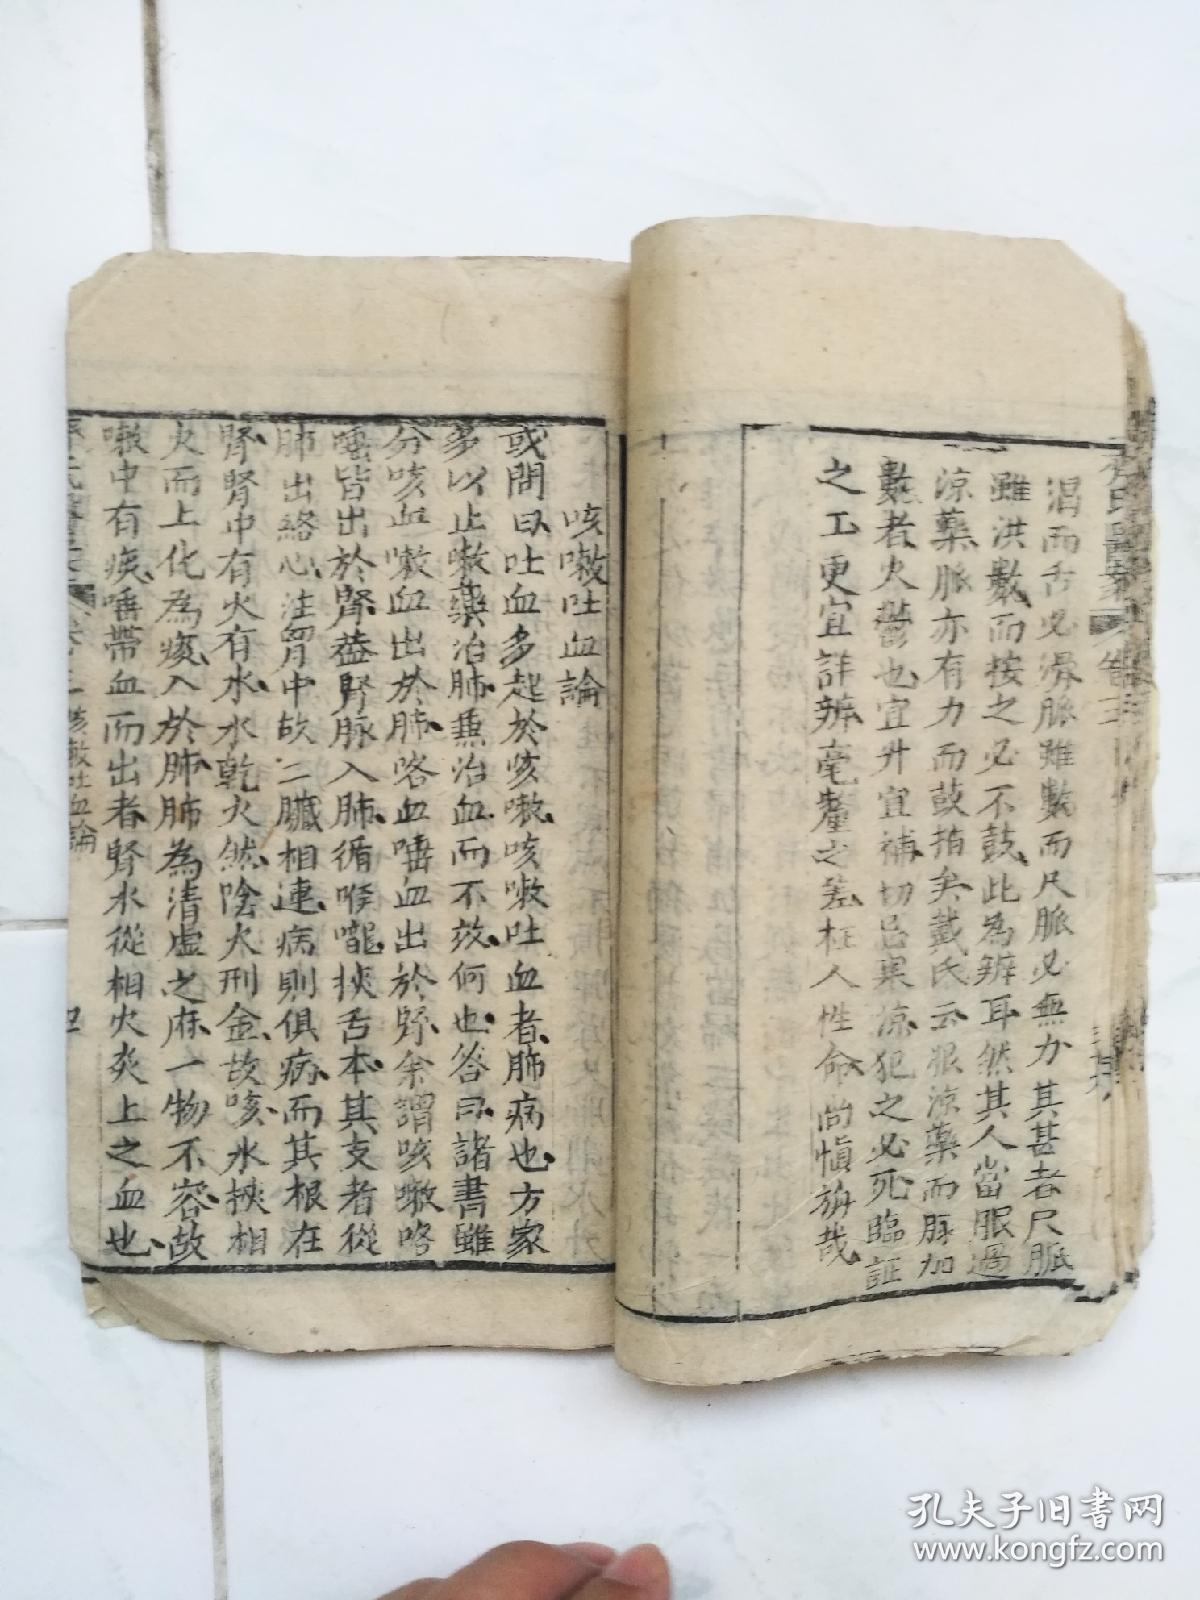 渴而舌必滑脈雖數而尺脈必無力其甚者尺脈
雖洪數而按之必不鼓此為辨耳然其人當服過
涼藥脈亦有力而鼓指矣戴氏云服涼藥而脈加
數者火鬱也宜升宜補切忌寒涼犯之必死臨証
之工更宜詳辨毫釐之差枉人性命尚慎旃哉
咳嗽吐血論
或問曰吐血多起於咳嗽咳嗽吐血者肺病也方家
多以止嗽藥治肺兼治血而不效何也答曰諸書雖
分咳血嗽血出於肺咯血唾血出於腎余謂咳嗽咯
唾皆出於腎葢腎脈入肺循喉嚨挾舌本其支者從
肺出絡心注胃中故二臟相連病則俱病而其根在
腎腎中有火有水水乾火然陰火刑金故咳水挾相
火而上化為痰入於肺肺為清虛之府一物不容故
嗽中有痰唾帶血而出者腎水從相火炎上之血也
咳嗽吐血論
四
孔夫子旧書网
www.kongfz.com